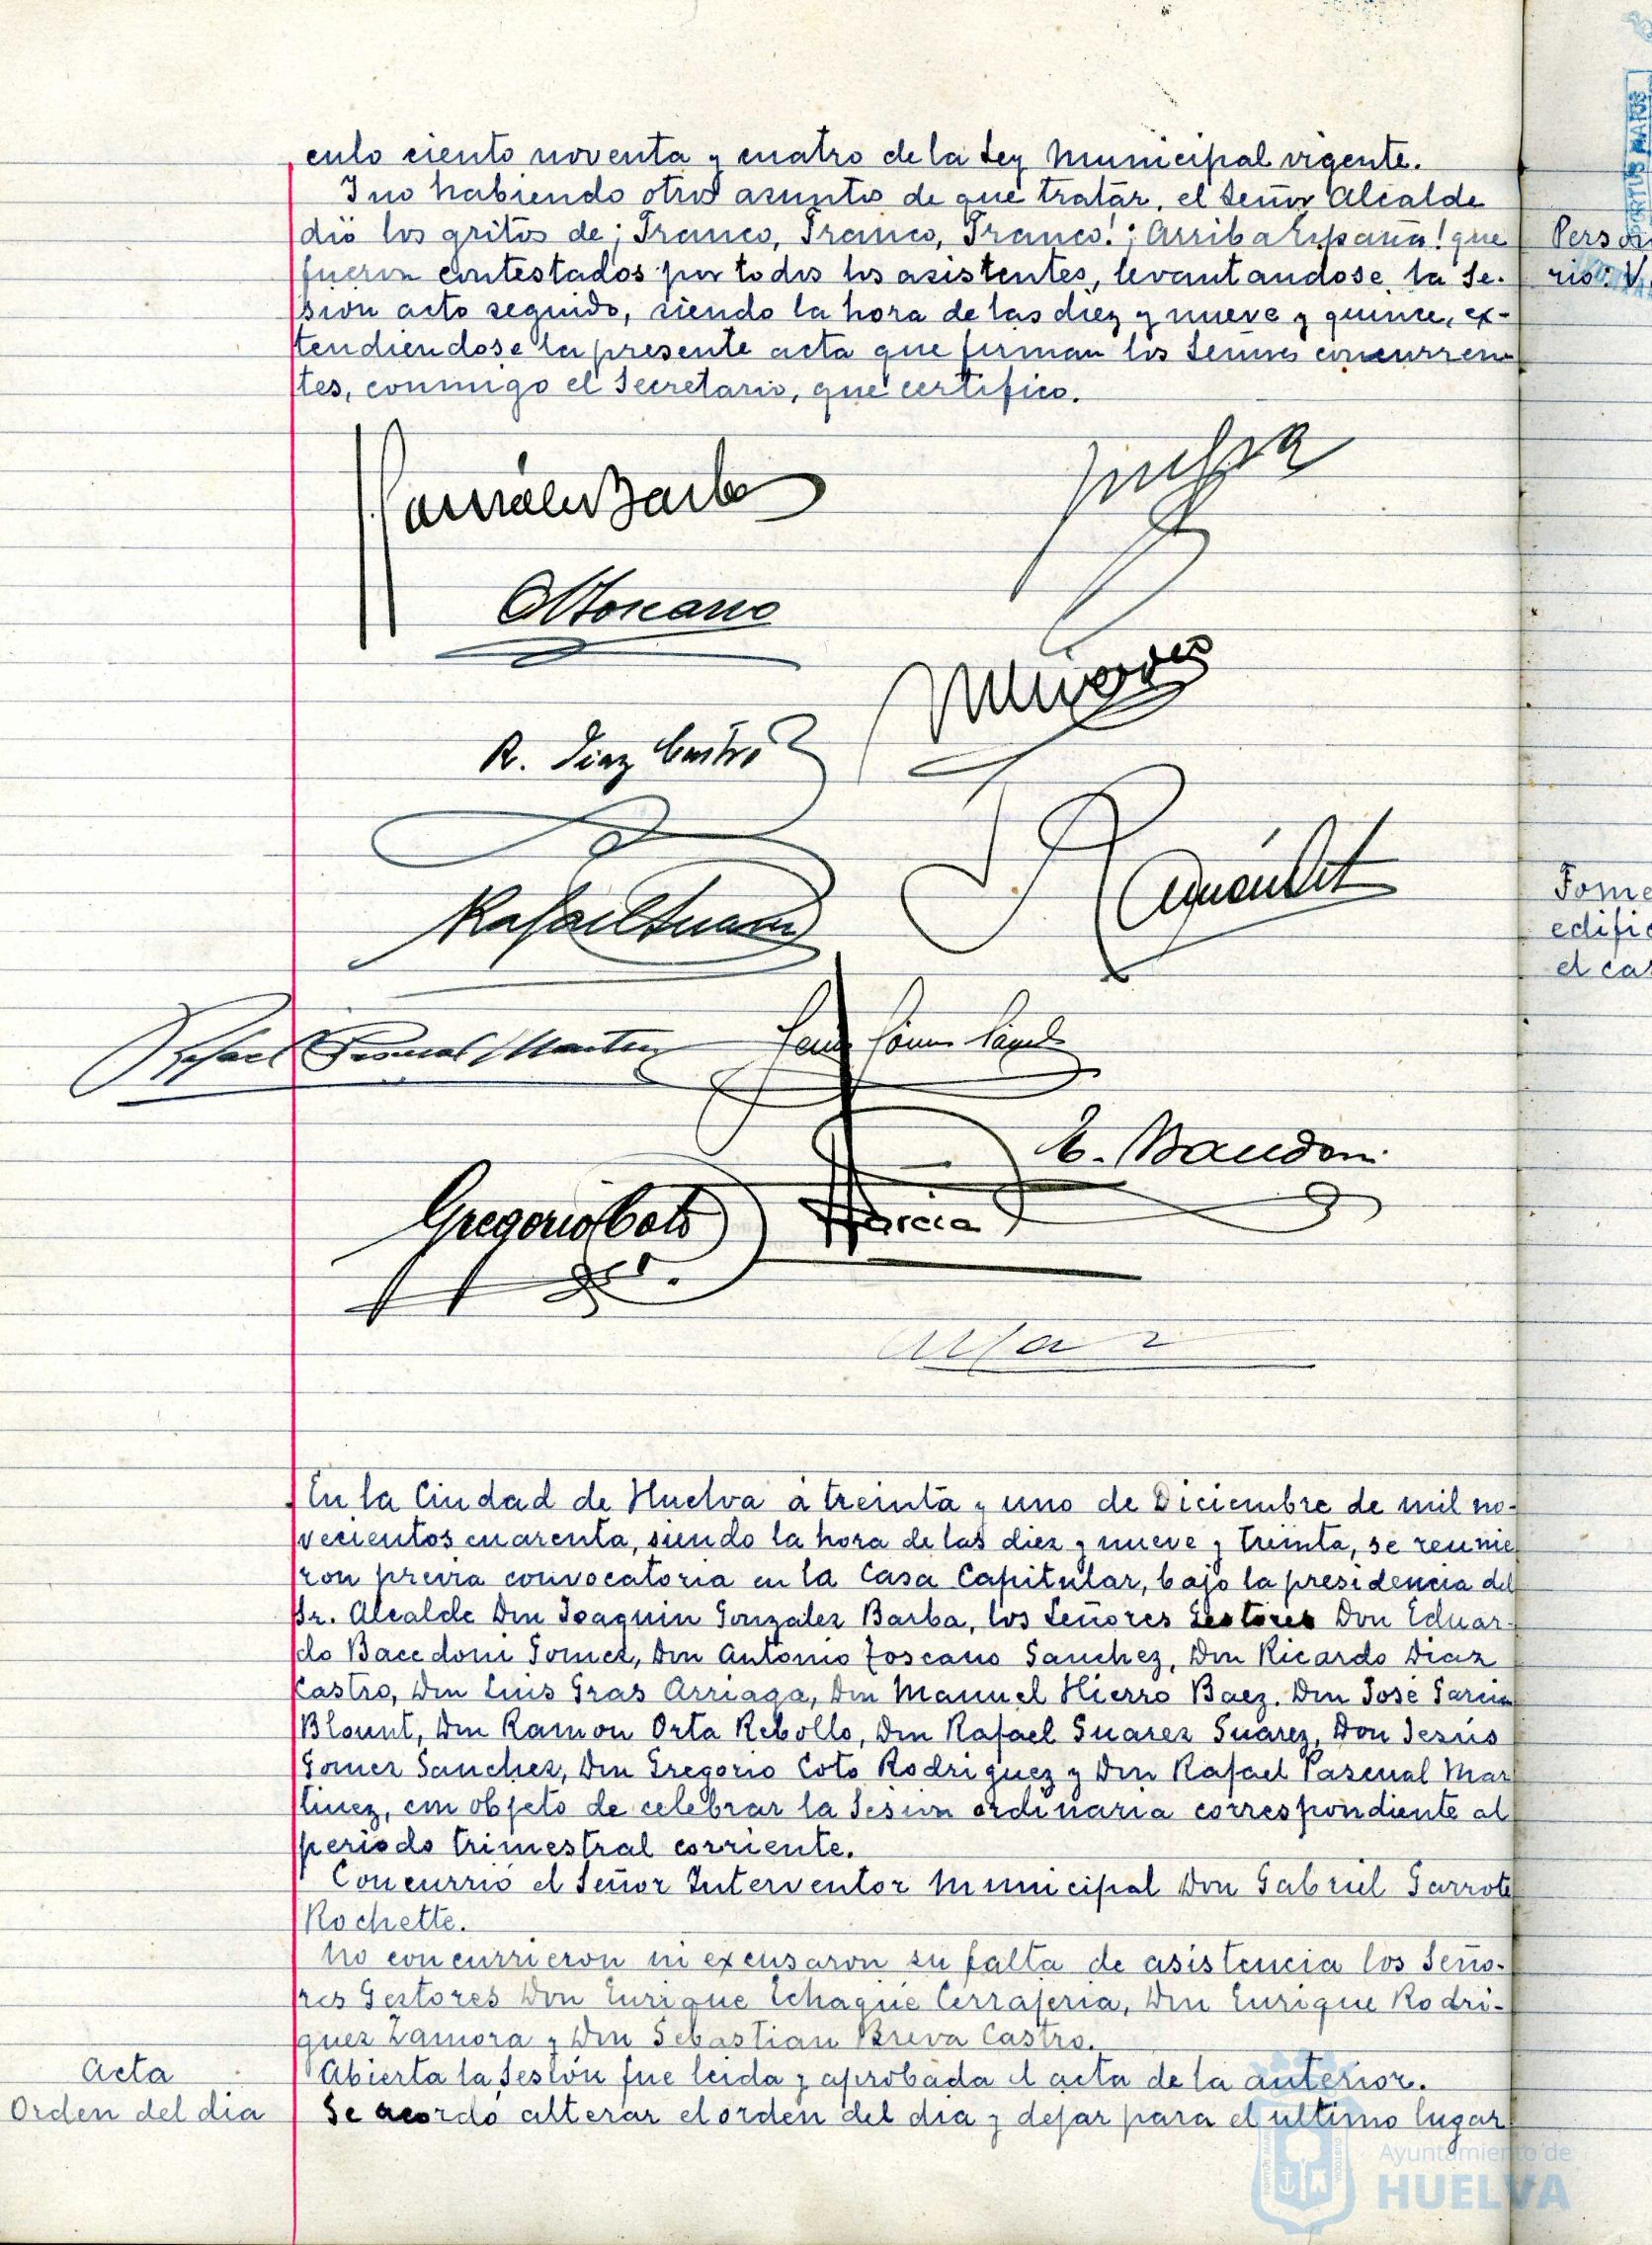 culo ciento noventa y cuatro de la Ley Municipal vigente.
Y no habiendo otros asuntos de que tratar, el Señor Alcalde
dió los gritos de ¡Franco, Franco, Franco! ¡Arriba España! que
fueron contestados por todos los asistentes, levantandose la Se-
sion acto seguido, siendo la hora de las diez y nueve y quince, ex-
tendiendose la presente acta que firman los Señores concurren-
tes, conmigo el Secretario, que certifico.
González Barba
Toscano
R. Diaz Castro
Rafael Suarez
Rafael Pascual Martinez
Jesús Gómez Sánchez
E. Bacedoni
Gregorio Coto
Garcia
En la Ciudad de Huelva á treinta y uno de Diciembre de mil no-
vecientos cuarenta, siendo la hora de las diez y nueve y treinta, se reunie
ron previa convocatoria en la Casa Capitular, bajo la presidencia del
Sr. Alcalde Don Joaquin Gonzalez Barba, los Señores Gestores Don Eduar-
do Bacedoni Gomez, Don Antonio Toscano Sanchez, Don Ricardo Diaz
Castro, Don Luis Gras Arriaga, Don Manuel Hierro Baez. Don José Garcia
Blount, Don Ramon Orta Rebollo, Don Rafael Suarez Suarez, Don Jesús
Gomez Sanchez, Don Gregorio Coto Rodriguez y Don Rafael Pascual Mar
tinez, con objeto de celebrar la Sesion ordinaria correspondiente al
periodo trimestral corriente.
Concurrió el Señor Interventor Municipal Don Gabriel Garrote
Rochette.
No concurrieron ni excusaron su falta de asistencia los Seño-
res Gestores Don Enrique Echague Cerrajeria, Don Enrique Rodri-
guez Zamora y Don Sebastian Breva Castro.
Acta
Abierta la Sesión fue leida y aprobada el acta de la anterior.
Orden del dia
Se acordó alterar el orden del dia y dejar para el ultimo lugar
Ayuntamiento de
HUELVA
Fome
edific
el cas